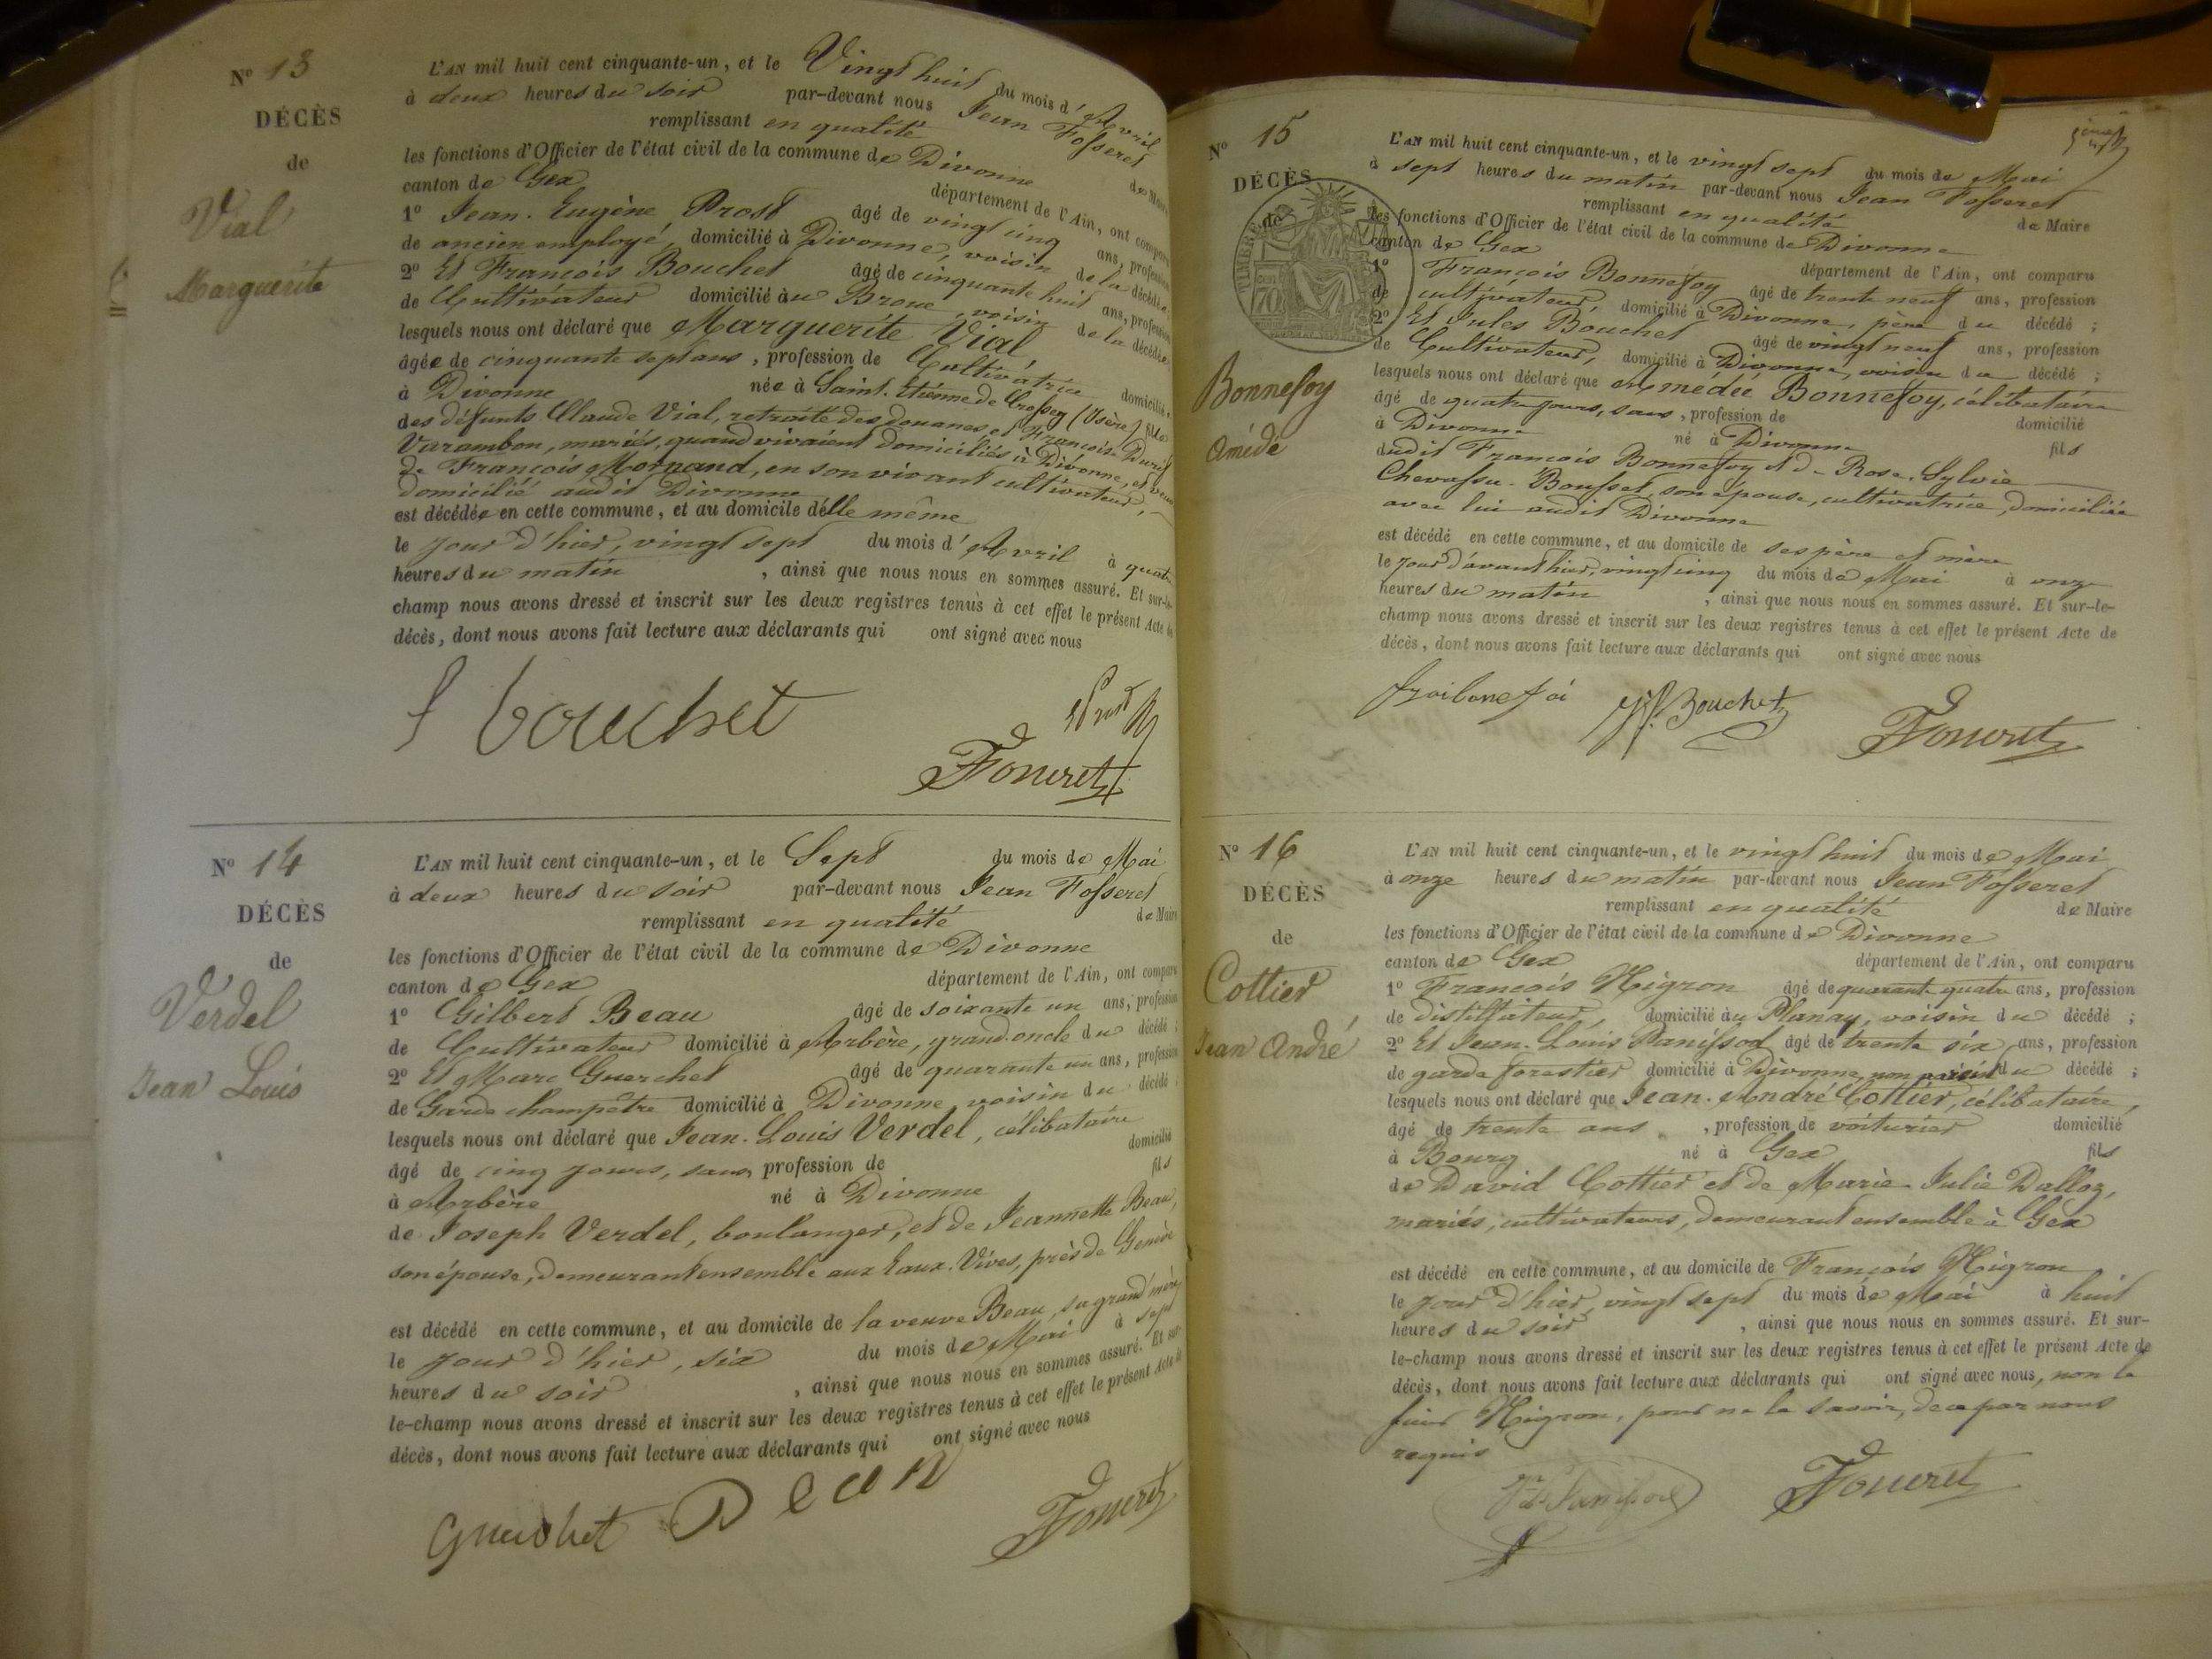 Nº 13
DÉCÈS
de
Vial
Marguerite
L'AN mil huit cent cinquante-un, et le Vingt huit du mois d'Avril
à deux heures du soir par-devant nous Jean Fosseret
remplissant en qualité de Maire
les fonctions d'Officier de l'état civil de la commune de Divonne
canton de Gex département de l'Ain, ont comparu
1º Jean-Eugène Prost âgé de vingt cinq ans, profession
de ancien employé, domicilié à Divonne, voisin de la décédée
2º Et François Bouchet âgé de cinquante huit ans, profession
de Cultivateur domicilié au Broue, voisin de la décédée
lesquels nous ont déclaré que Marguerite Vial,
âgée de cinquante sept ans, profession de Cultivatrice domiciliée
à Divonne née à Saint-Étienne de Crossey (Isère) fille
des défunts Claude Vial, retraité des douanes et Françoise
Varambon, mariés, quand vivaient domiciliés à Divonne, et veuve
de François Mornand, en son vivant cultivateur,
domicilié audit Divonne
est décédée en cette commune, et au domicile d'elle même
le jour d'hier, vingt sept du mois d'Avril à quatre
heures du matin, ainsi que nous nous en sommes assuré. Et sur-le-
champ nous avons dressé et inscrit sur les deux registres tenus à cet effet le présent Acte de
décès, dont nous avons fait lecture aux déclarants qui ont signé avec nous
f bouchet
E Prost
Fosseret
Nº 14
DÉCÈS
de
Verdel
Jean Louis
L'AN mil huit cent cinquante-un, et le Sept du mois de Mai
à deux heures du soir par-devant nous Jean Fosseret
remplissant en qualité de Maire
les fonctions d'Officier de l'état civil de la commune de Divonne
canton de Gex département de l'Ain, ont comparu
1º Gilbert Beau âgé de soixante un ans, profession
de Cultivateur domicilié à Arbère, grand-oncle du décédé ;
2º Et Marc Guerchet âgé de quarante un ans, profession
de Garde champêtre domicilié à Divonne, voisin du décédé ;
lesquels nous ont déclaré que Jean-Louis Verdel, célibataire
âgé de cinq jours, sans profession de domicilié
à Arbère né à Divonne fils
de Joseph Verdel, boulanger, et de Jeannette Beau,
son épouse, demeurant ensemble aux Eaux-Vives, près de Genève
est décédé en cette commune, et au domicile de la veuve Beau, sa grand'mère
le jour d'hier, six du mois de Mai à sept
heures du soir, ainsi que nous nous en sommes assuré. Et sur-
le-champ nous avons dressé et inscrit sur les deux registres tenus à cet effet le présent Acte de
décès, dont nous avons fait lecture aux déclarants qui ont signé avec nous
Guerchet Beau
Fosseret
Nº 15
DÉCÈS
de
TIMBRE
70
Bonnefoy
Amédé
L'AN mil huit cent cinquante-un, et le vingt sept du mois de Mai
à sept heures du matin par-devant nous Jean Fosseret
remplissant en qualité de Maire
les fonctions d'Officier de l'état civil de la commune de Divonne
canton de Gex département de l'Ain, ont comparu
1º François Bonnefoy âgé de trente neuf ans, profession
de cultivateur, domicilié à Divonne, père du décédé ;
2º Et Jules Bouchet âgé de vingt neuf ans, profession
de Cultivateur, domicilié à Divonne, voisin du décédé ;
lesquels nous ont déclaré que Amédée Bonnefoy, célibataire
âgé de quatre jours, sans, profession de domicilié
à Divonne né à Divonne fils
dudit François Bonnefoy et de Rose-Sylvie
Chevassu-Bousset, son épouse, cultivatrice, domiciliée
avec lui audit Divonne
est décédé en cette commune, et au domicile de ses père et mère
le jour d'avant hier, vingt cinq du mois de Mai à onze
heures du matin, ainsi que nous nous en sommes assuré. Et sur-le-
champ nous avons dressé et inscrit sur les deux registres tenus à cet effet le présent Acte de
décès, dont nous avons fait lecture aux déclarants qui ont signé avec nous
Bouchet
Fosseret
Nº 16
DÉCÈS
de
Cottier,
Jean André
L'AN mil huit cent cinquante-un, et le vingt huit du mois de Mai
à onze heures du matin par-devant nous Jean Fosseret
remplissant en qualité de Maire
les fonctions d'Officier de l'état civil de la commune de Divonne
canton de Gex département de l'Ain, ont comparu
1º François Nigron âgé de quarante quatre ans, profession
de distillateur, domicilié au Planay, voisin du décédé ;
2º Et Jean-Louis Panissod âgé de trente six ans, profession
de garde forestier domicilié à Divonne, non parent du décédé ;
lesquels nous ont déclaré que Jean-André Cottier, célibataire,
âgé de trente ans, profession de voiturier domicilié
à Bourg né à Gex fils
de David Cottier et de Marie-Julie Dalloz,
mariés, cultivateurs, demeurant ensemble à Gex
est décédé en cette commune, et au domicile de François Nigron
le jour d'hier, vingt sept du mois de Mai à huit
heures du soir, ainsi que nous nous en sommes assuré. Et sur-
le-champ nous avons dressé et inscrit sur les deux registres tenus à cet effet le présent Acte de
décès, dont nous avons fait lecture aux déclarants qui ont signé avec nous, non le
sieur Nigron, pour ne le savoir, de ce par nous
requis
Fosseret